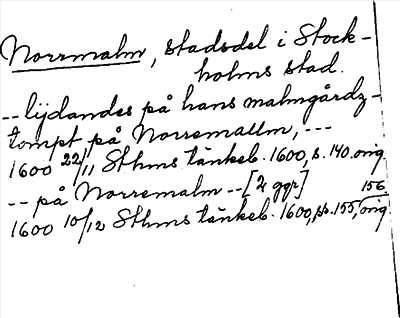 Norrmalm, stadsdel i Stock-
holms stad.
-- lydandes på hans malmgårdz-
tompt på Norremallm, ---
1600 22/11 Sthms tänkeb. 1600, s. 140. orig.
-- på Norremalm -- [2 ggr]
156
1600 10/12 Sthms tänkeb. 1600, ss. 155, orig.